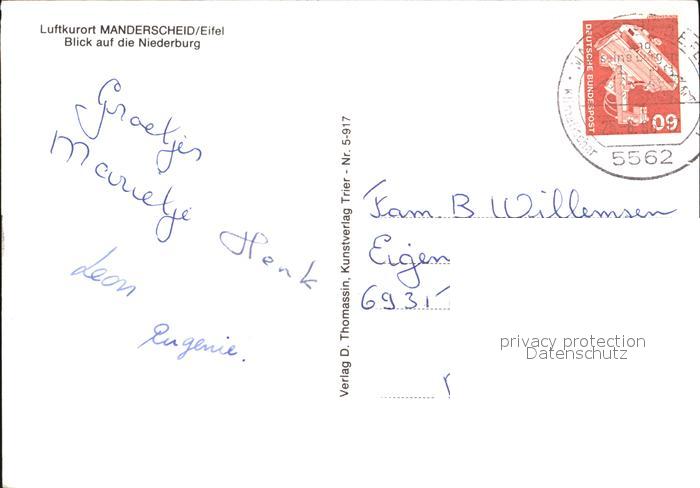 Luftkurort MANDERSCHEID/Eifel
Blick auf die Niederburg
Groetjes
Marietje
Henk
Leon
Eugenie.
Verlag D. Thomassin, Kunstverlag Trier - Nr. 5-917
DEUTSCHE BUNDESPOST
60
5562
Fam. B Willemsen
Eigen
6931
privacy protection
Datenschutz